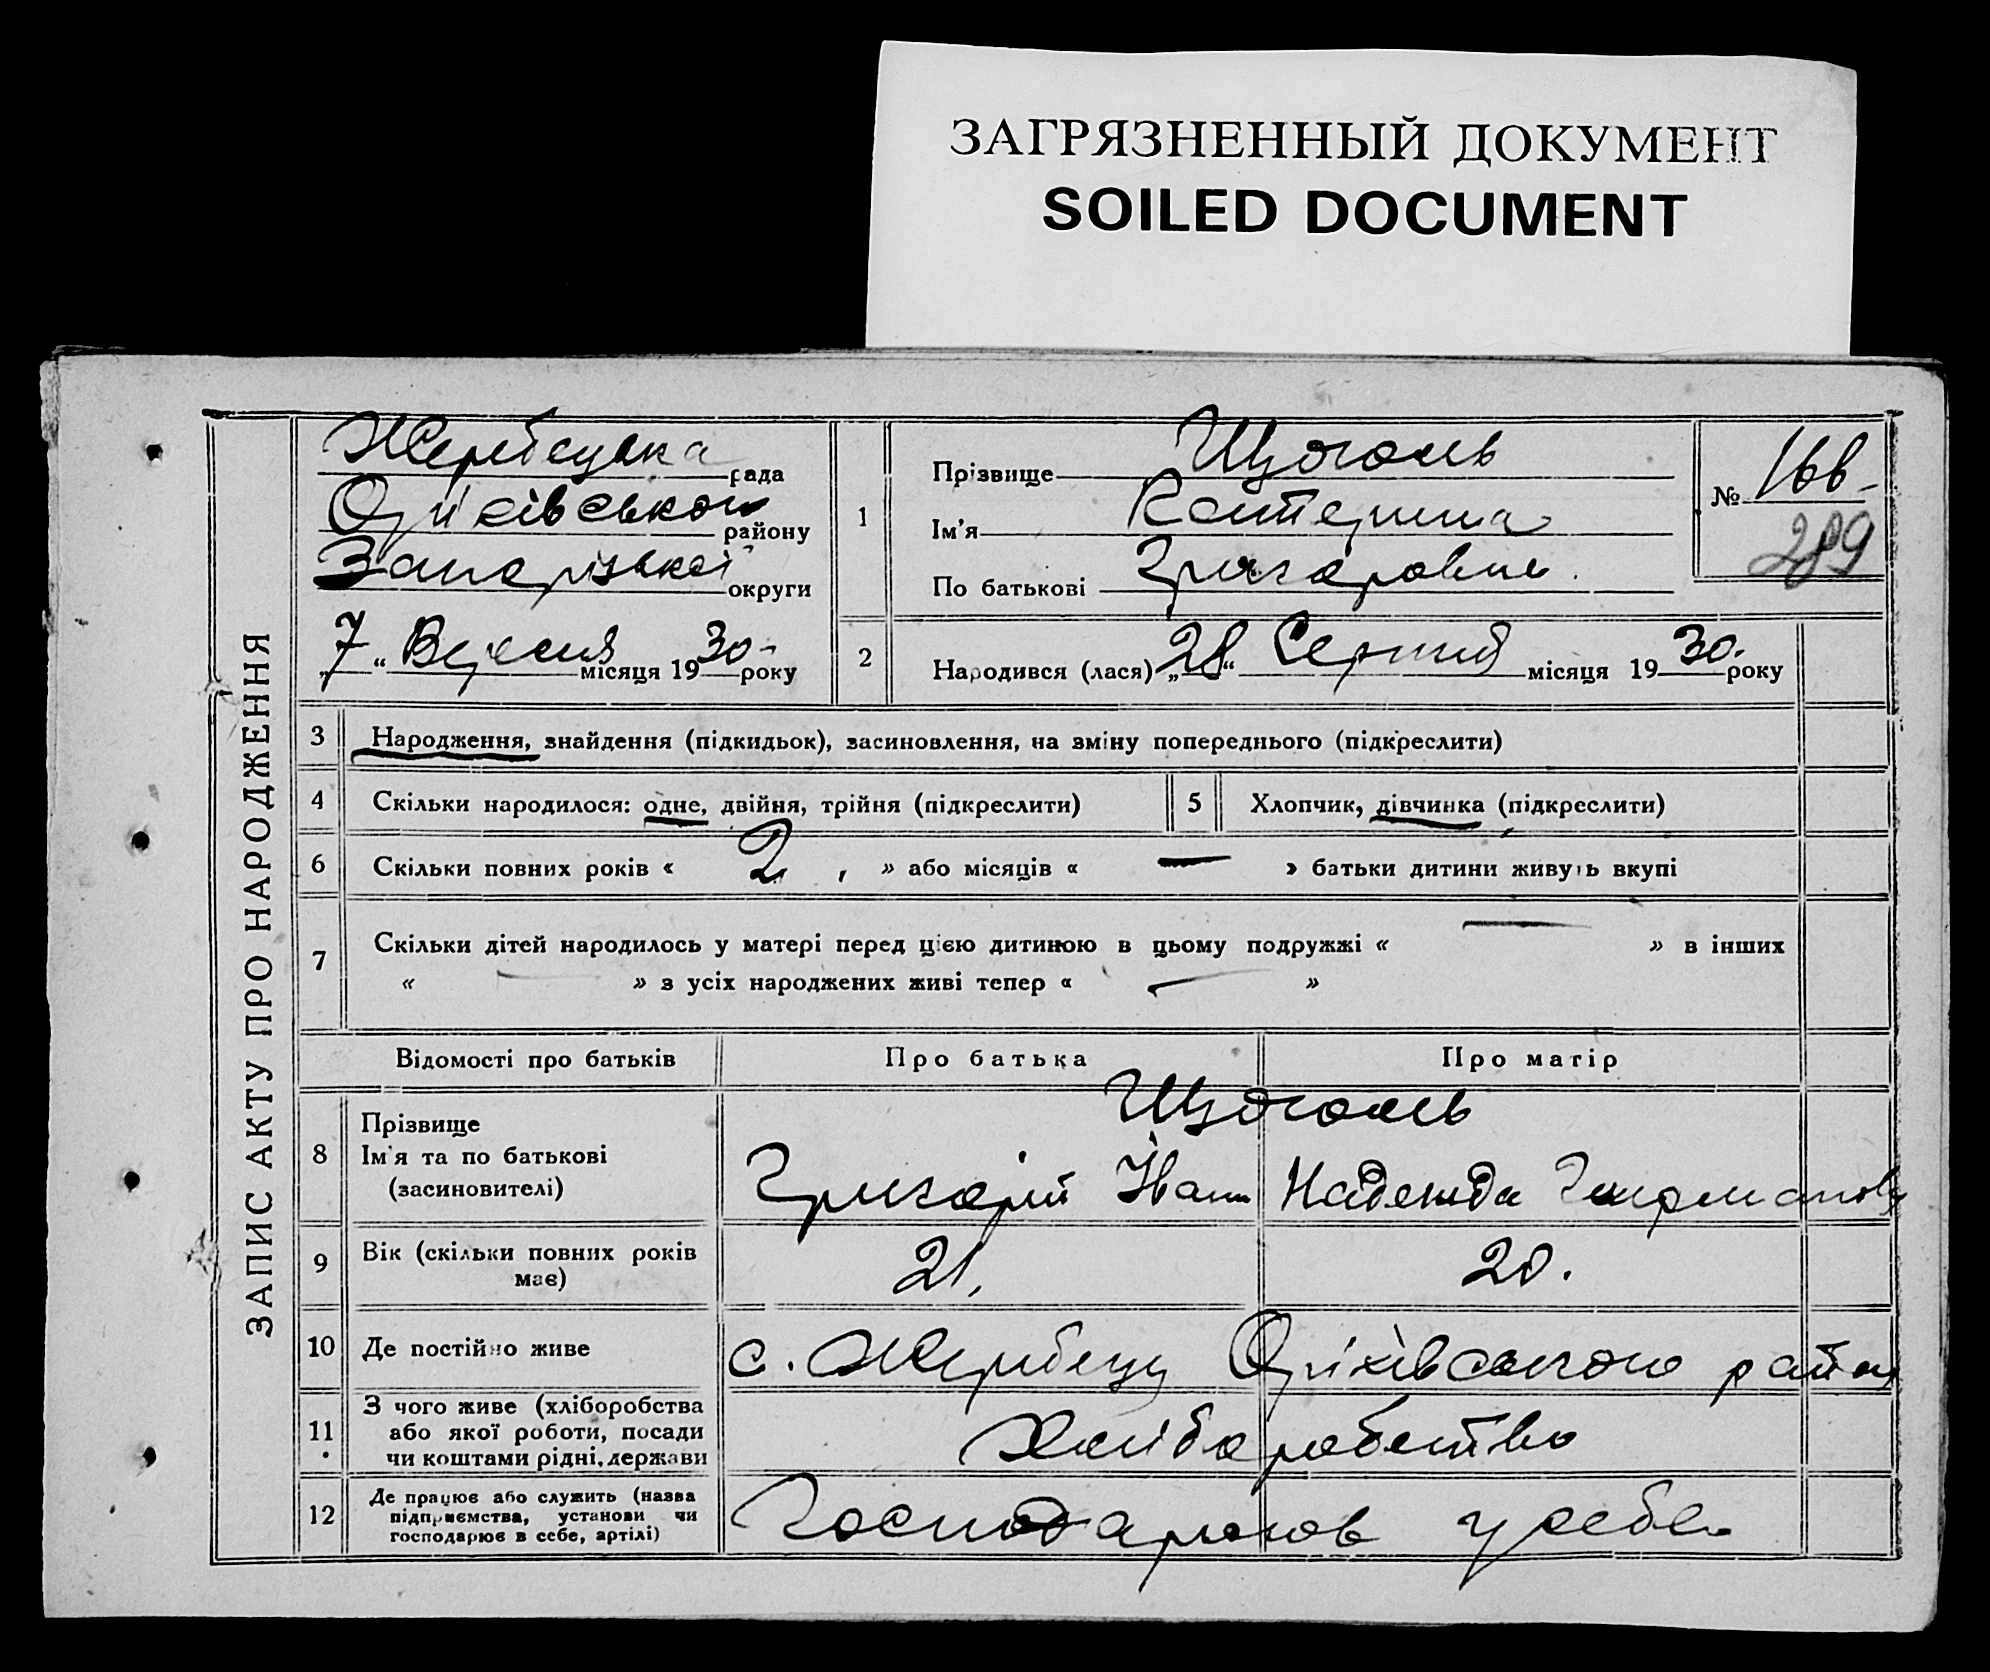 ЗАГРЯЗНЕННЫЙ ДОКУМЕНТ
SOILED DOCUMENT
ЗАПИС АКТУ ПРО НАРОДЖЕННЯ
Жеребецька рада
Оріхівського району
Запорізької округи
„7“ Вересня місяця 1930 року
1
Прізвище Щоголь
Ім’я Катерина
По батькові Григоровна
№ 166
289
2
Народився (лася) „28“ Серпня місяця 1930 року
3 Народження, знайдення (підкидьок), засиновлення, на зміну попереднього (підкреслити)
4 Скільки народилося: одне, двійня, трійня (підкреслити)
5 Хлопчик, дівчинка (підкреслити)
6 Скільки повних років « 2 » або місяців « — » батьки дитини живуть вкупі
7 Скільки дітей народилось у матері перед цією дитиною в цьому подружжі « — » в інших
« — » з усіх народжених живі тепер « — »
Відомості про батьків Про батька Про матір
8 Прізвище
Ім'я та по батькові
(засиновителі)
Щоголь
Григорій Іван Надежда
9 Вік (скільки повних років
має)
21. 20.
10 Де постійно живе
с. Жеребець Оріхівського району
11 З чого живе (хліборобства
або якої роботи, посади
чи коштами рідні, держави
Хліборобство
12 Де працює або служить (назва
підприємства, установи чи
господарює в себе, артілі)
Господарює у себе